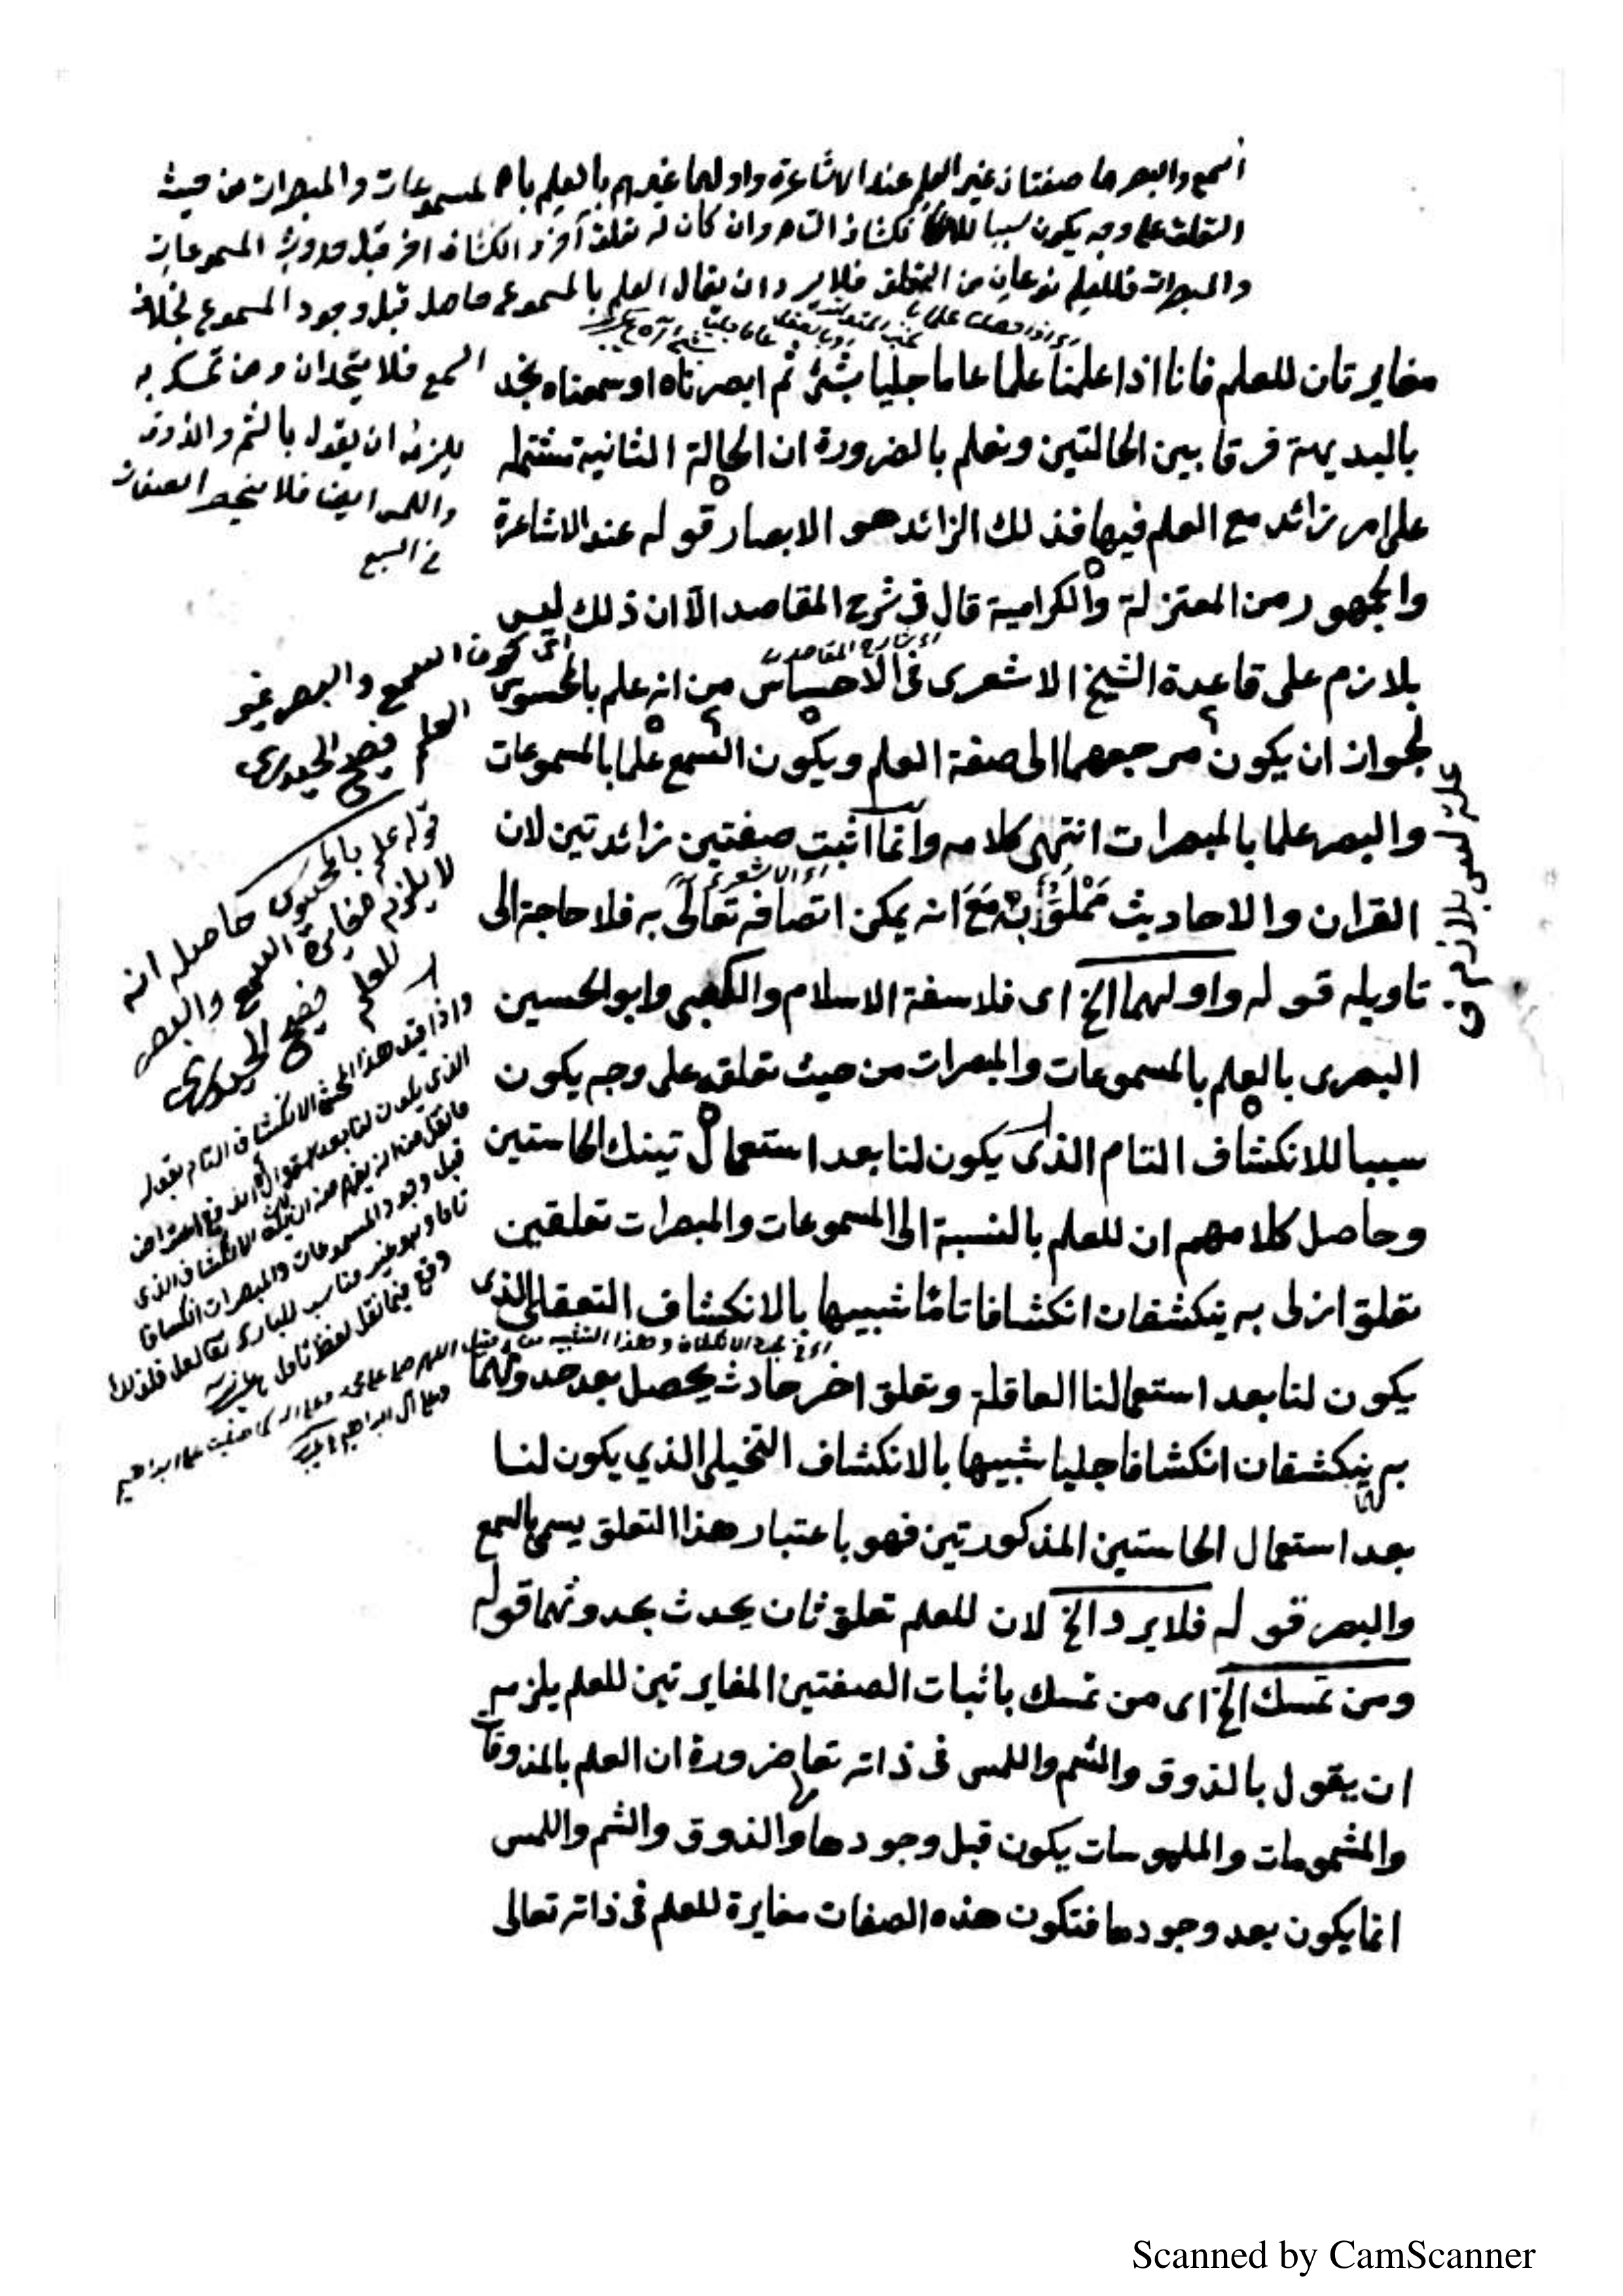 السمع والبصر هما صفتان غير العلم عند الاشاعرة واولهما غيرهم بالعلم بالمسموعات والمبصرات من حيث
التعلق على وجه يكون سببا للانكشاف التام وان كان له تعلق آخر وانكشاف اخر قبل حدوث المسموعات
والمبصرات فللعلم نوعان من التعلق فلا يرد ان يقال العلم بالمسموع حاصل قبل وجود المسموع بخلاف
السمع فلا يتحدان ومن تمسك به
يلزمه ان يقول بالشم والذوق
واللمس ايضا فلا ينحصر الصفات
في السبع
مغايرتان للعلم فانا اذا علمنا علما عاما جليا بشئ ثم ابصرناه او سمعناه نجد
بالبديهة فرقا بين الحالتين ونعلم بالضرورة ان الحالة الثانية مشتملة
على امر زائد مع العلم فيها فذلك الزائد هو الابصار قوله عند الاشاعرة
والجمهور من المعتزلة والكرامية قال في شرح المقاصد الا ان ذلك ليس
اى شارح المقاصد
بلازم على قاعدة الشيخ الاشعرى فى الاحساس من انه علم بالمحسوس
لجواز ان يكون مرجعهما الى صفة العلم ويكون السمع علما بالمسموعات
والبصر علما بالمبصرات انتهى كلامه وانما اثبت صفتين زائدتين لان
اى الاشعرى
القران والاحاديث مملوءة به مع انه يمكن اتصافه تعالى به فلا حاجة الى
تاويله قوله واولهما الخ اى فلاسفة الاسلام والكعبى وابو الحسين
البصرى بالعلم بالمسموعات والمبصرات من حيث تعلقه على وجه يكون
سببا للانكشاف التام الذى يكون لنا بعد استعمال تينك الحاستين
وحاصل كلامهم ان للعلم بالنسبة الى المسموعات والمبصرات تعلقين
تعلق ازلى به ينكشفان انكشافا تاما شبيها بالانكشاف التعقلى الذى
يكون لنا بعد استعمالنا العاقلة وتعلق اخر حادث يحصل بعد حدوثهما
به ينكشفان انكشافا جليا شبيها بالانكشاف التخيلى الذي يكون لنا
بعد استعمال الحاستين المذكورتين فهو باعتبار هذا التعلق يسمى بالسمع
والبصر قوله فلا يرد الخ لان للعلم تعلق ثان يحدث بحدوثهما قوله
ومن تمسك الخ اى من تمسك باثبات الصفتين المغايرتين للعلم يلزمه
ان يقول بالذوق والشم واللمس فى ذاته تعا ضرورة ان العلم بالمذوقات
والمشمومات والملموسات يكون قبل وجودها والذوق والشم واللمس
انما يكون بعد وجودها فتكون هذه الصفات مغايرة للعلم فى ذاته تعالى
اى كون السمع والبصر غير
العلم فصيح الحيدرى
قوله علم بالمحسوس حاصله انه
لا يلزم مغايرة السمع والبصر
للعلم فصيح الحيدرى
واذا قيد هذا المحشى الانكشاف التام بقوله
الذى يكون لنا بعد
قبل وجود المسموعات والمبصرات انكشافا
تاما وهو غير مناسب للبارى تعا
وقع فيما نقل لفظ تأمل
علة ليس بلازم
Scanned by CamScanner